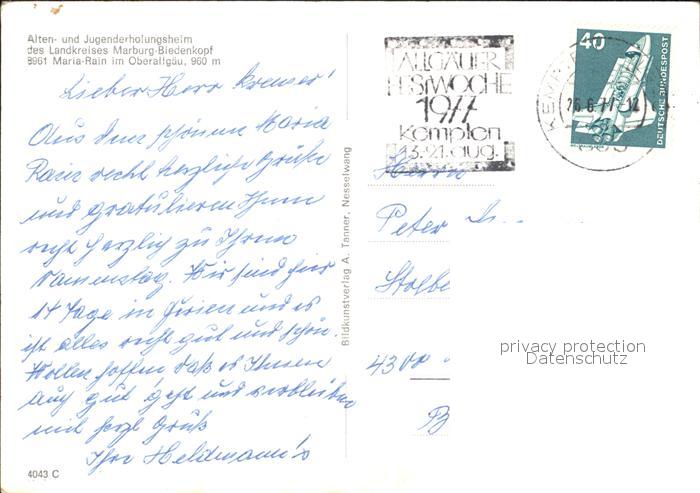 Alten- und Jugenderholungsheim
des Landkreises Marburg-Biedenkopf
8961 Maria-Rain im Oberallgäu, 960 m
Lieber Herr Kremer!
Aus dem schönen Maria
Rain recht herzliche Grüße
und gratulieren Ihnen
recht herzlich zu Ihrem
Namenstag. Wir sind hier
14 Tage in Ferien und es
ist alles recht gut und schön.
Wollen hoffen daß es Ihnen
auch gut geht und verbleiben
mit herzl Gruß
Ihre Heldmann's
4043 C
Bildkunstverlag A. Tanner, Nesselwang
ALLGÄUER
FESTWOCHE
1977
Kempten
13.-21. aug.
26.6.77-12
40
DEUTSCHE BUNDESPOST
Herrn
Peter
Stolbe
4300
B
privacy protection
Datenschutz